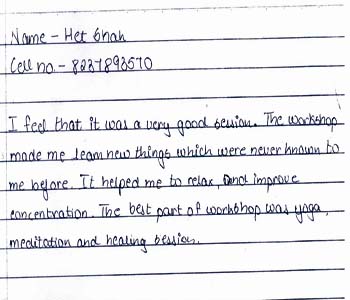 Name - Het Shah
Cell no. - 8237893570
I feel that it was a very good session. The workshop
made me learn new things which were never known to
me before. It helped me to relax, and improve
concentration. The best part of workshop was yoga,
meditation and healing session.